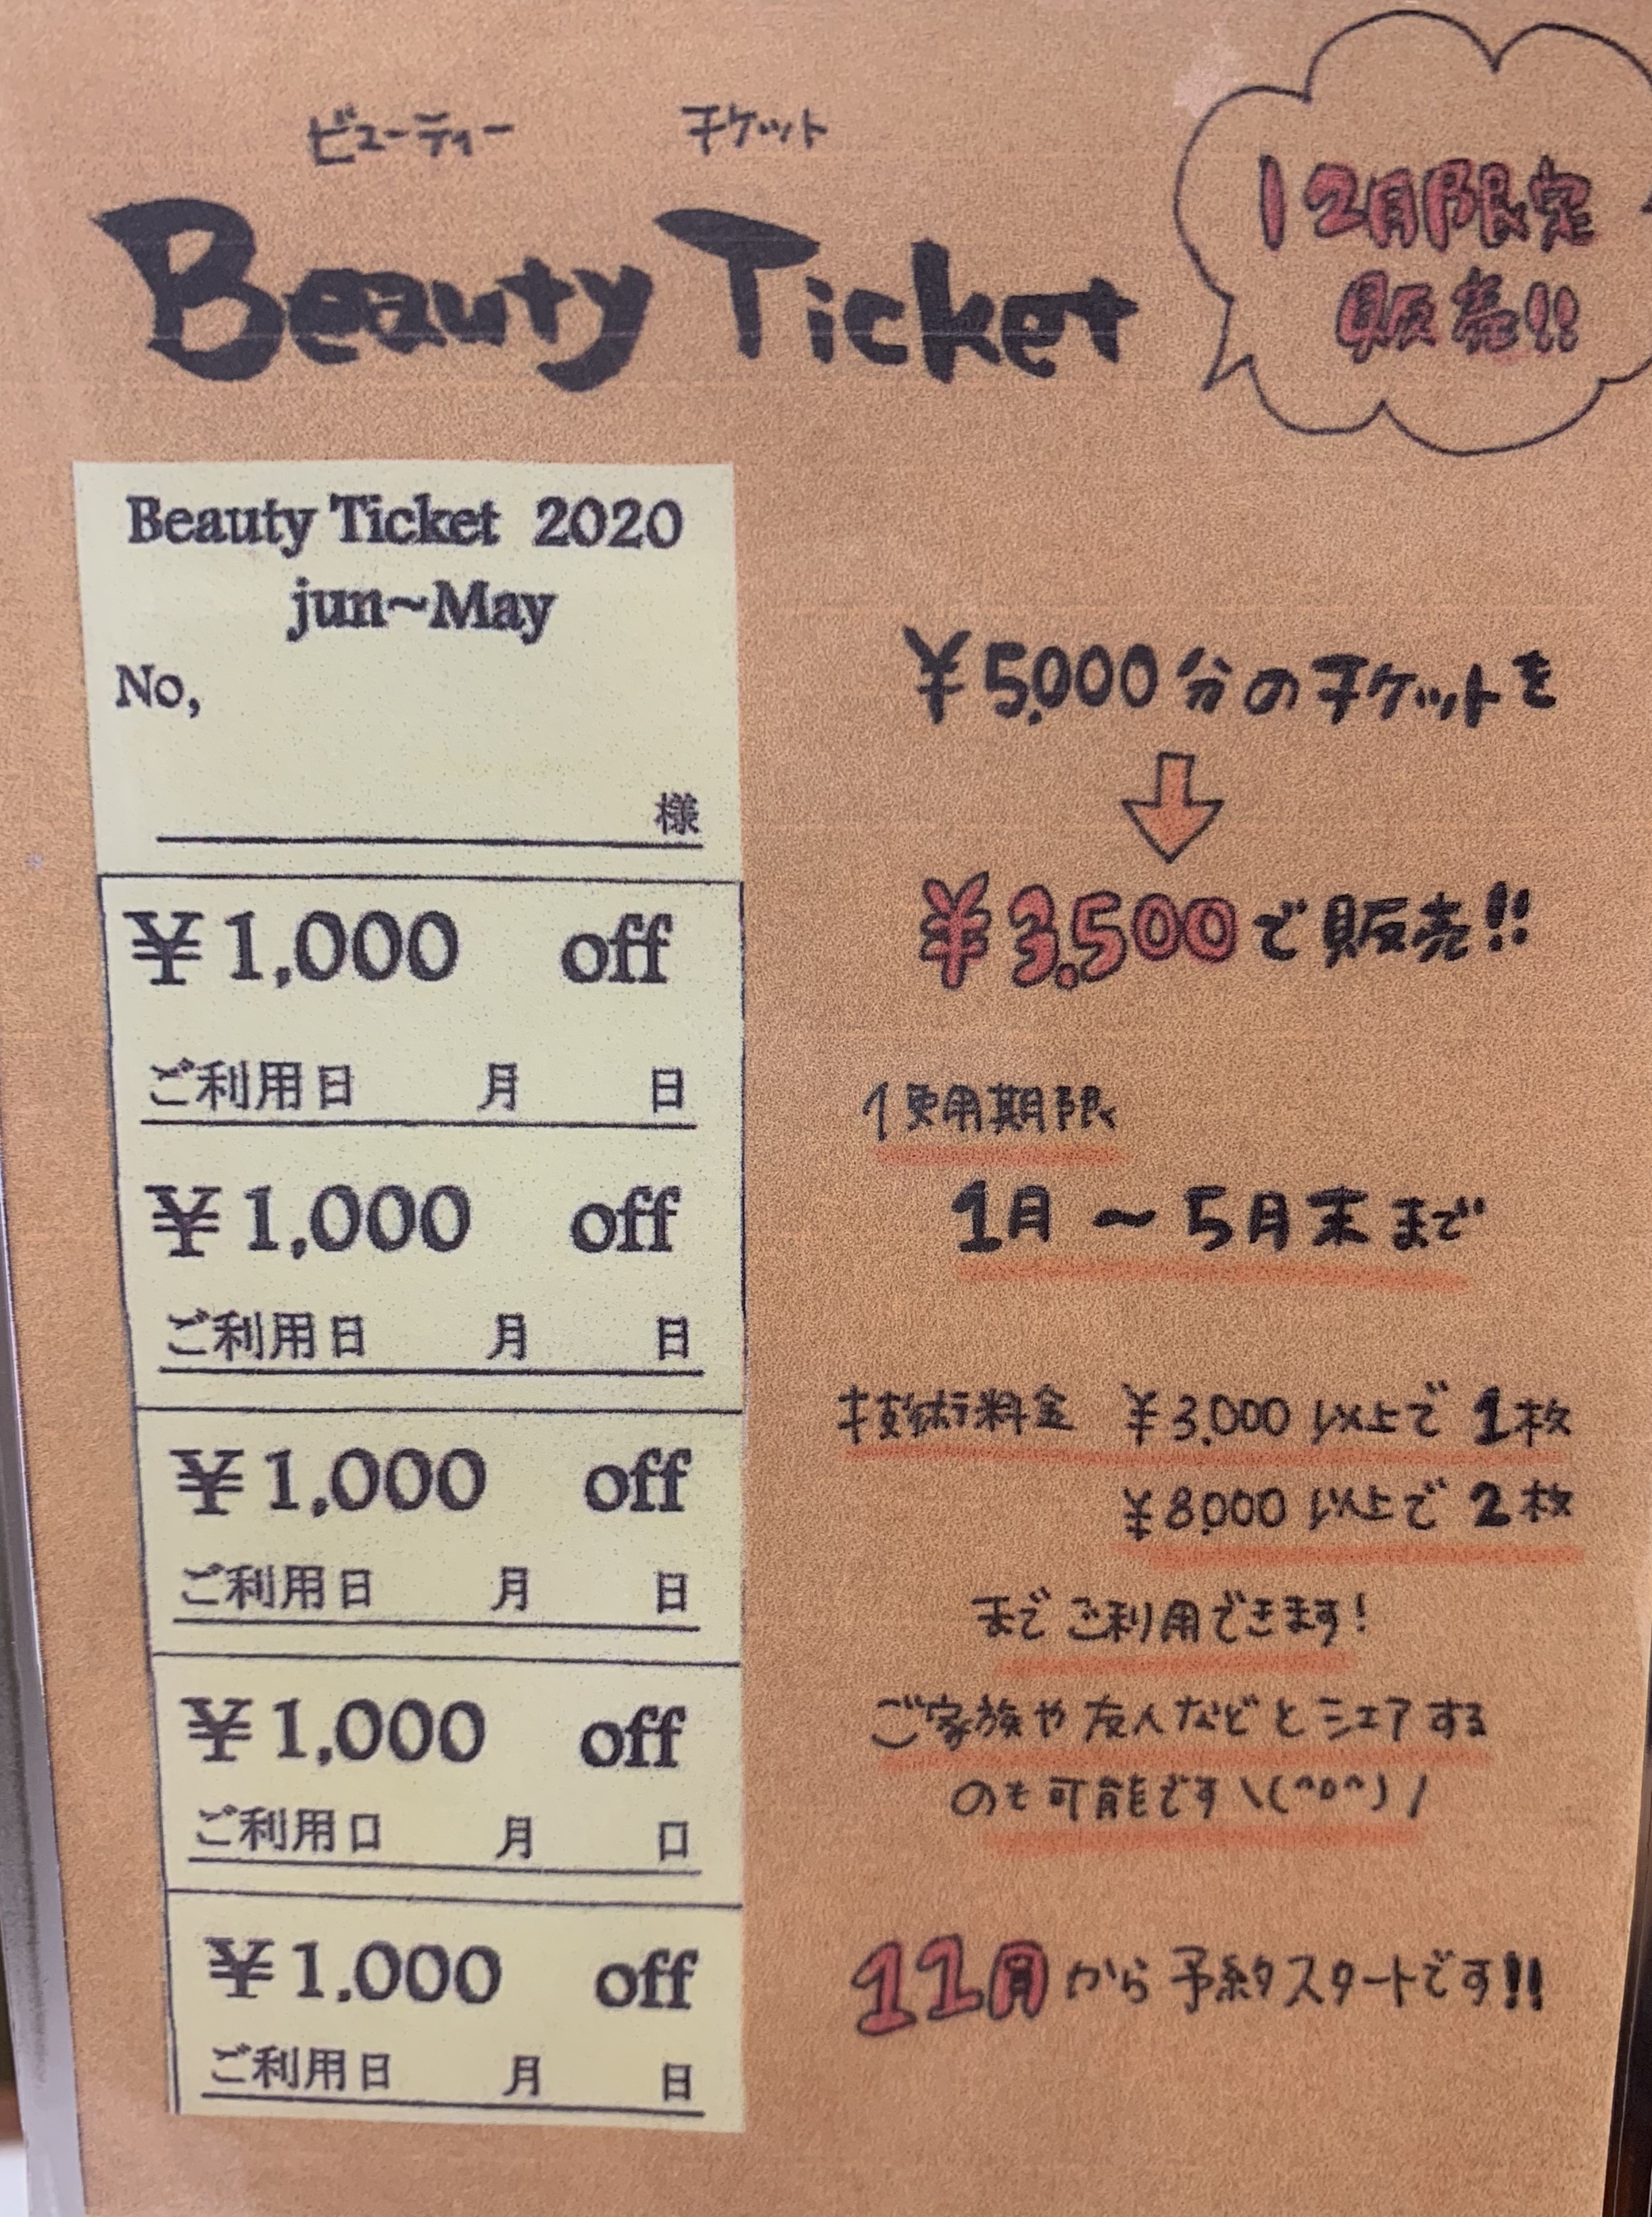 ビューティー チケット
Beauty Ticket
12月限定
販売!!
Beauty Ticket 2020
jun~May
No,
様
¥1,000 off
ご利用日 月 日
¥1,000 off
ご利用日 月 日
¥1,000 off
ご利用日 月 日
¥1,000 off
ご利用日 月 日
¥1,000 off
ご利用日 月 日
¥5,000分のチケットを
¥3,500で販売!!
使用期限
1月 ~ 5月末まで
技術料金 ¥3,000以上で1枚
¥8,000以上で2枚
までご利用できます!
ご家族や友人などとシェアする
のも可能です\(^o^)/
11月から予約スタートです!!